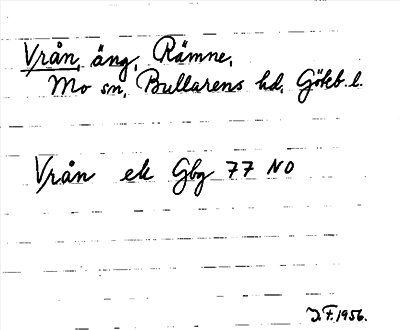 Vrån, äng, Rämne,
Mo sn, Bullarens hd, Göteb. l.
Vrån ek Gbg 77 NO
D. F. 1956.